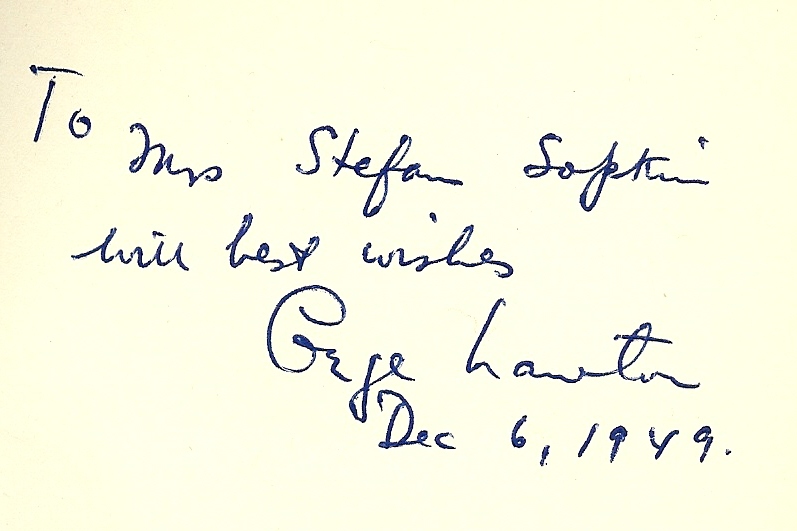 To Mrs Stefan Sopkin
with best wishes
George Lawton
Dec 6, 1949.